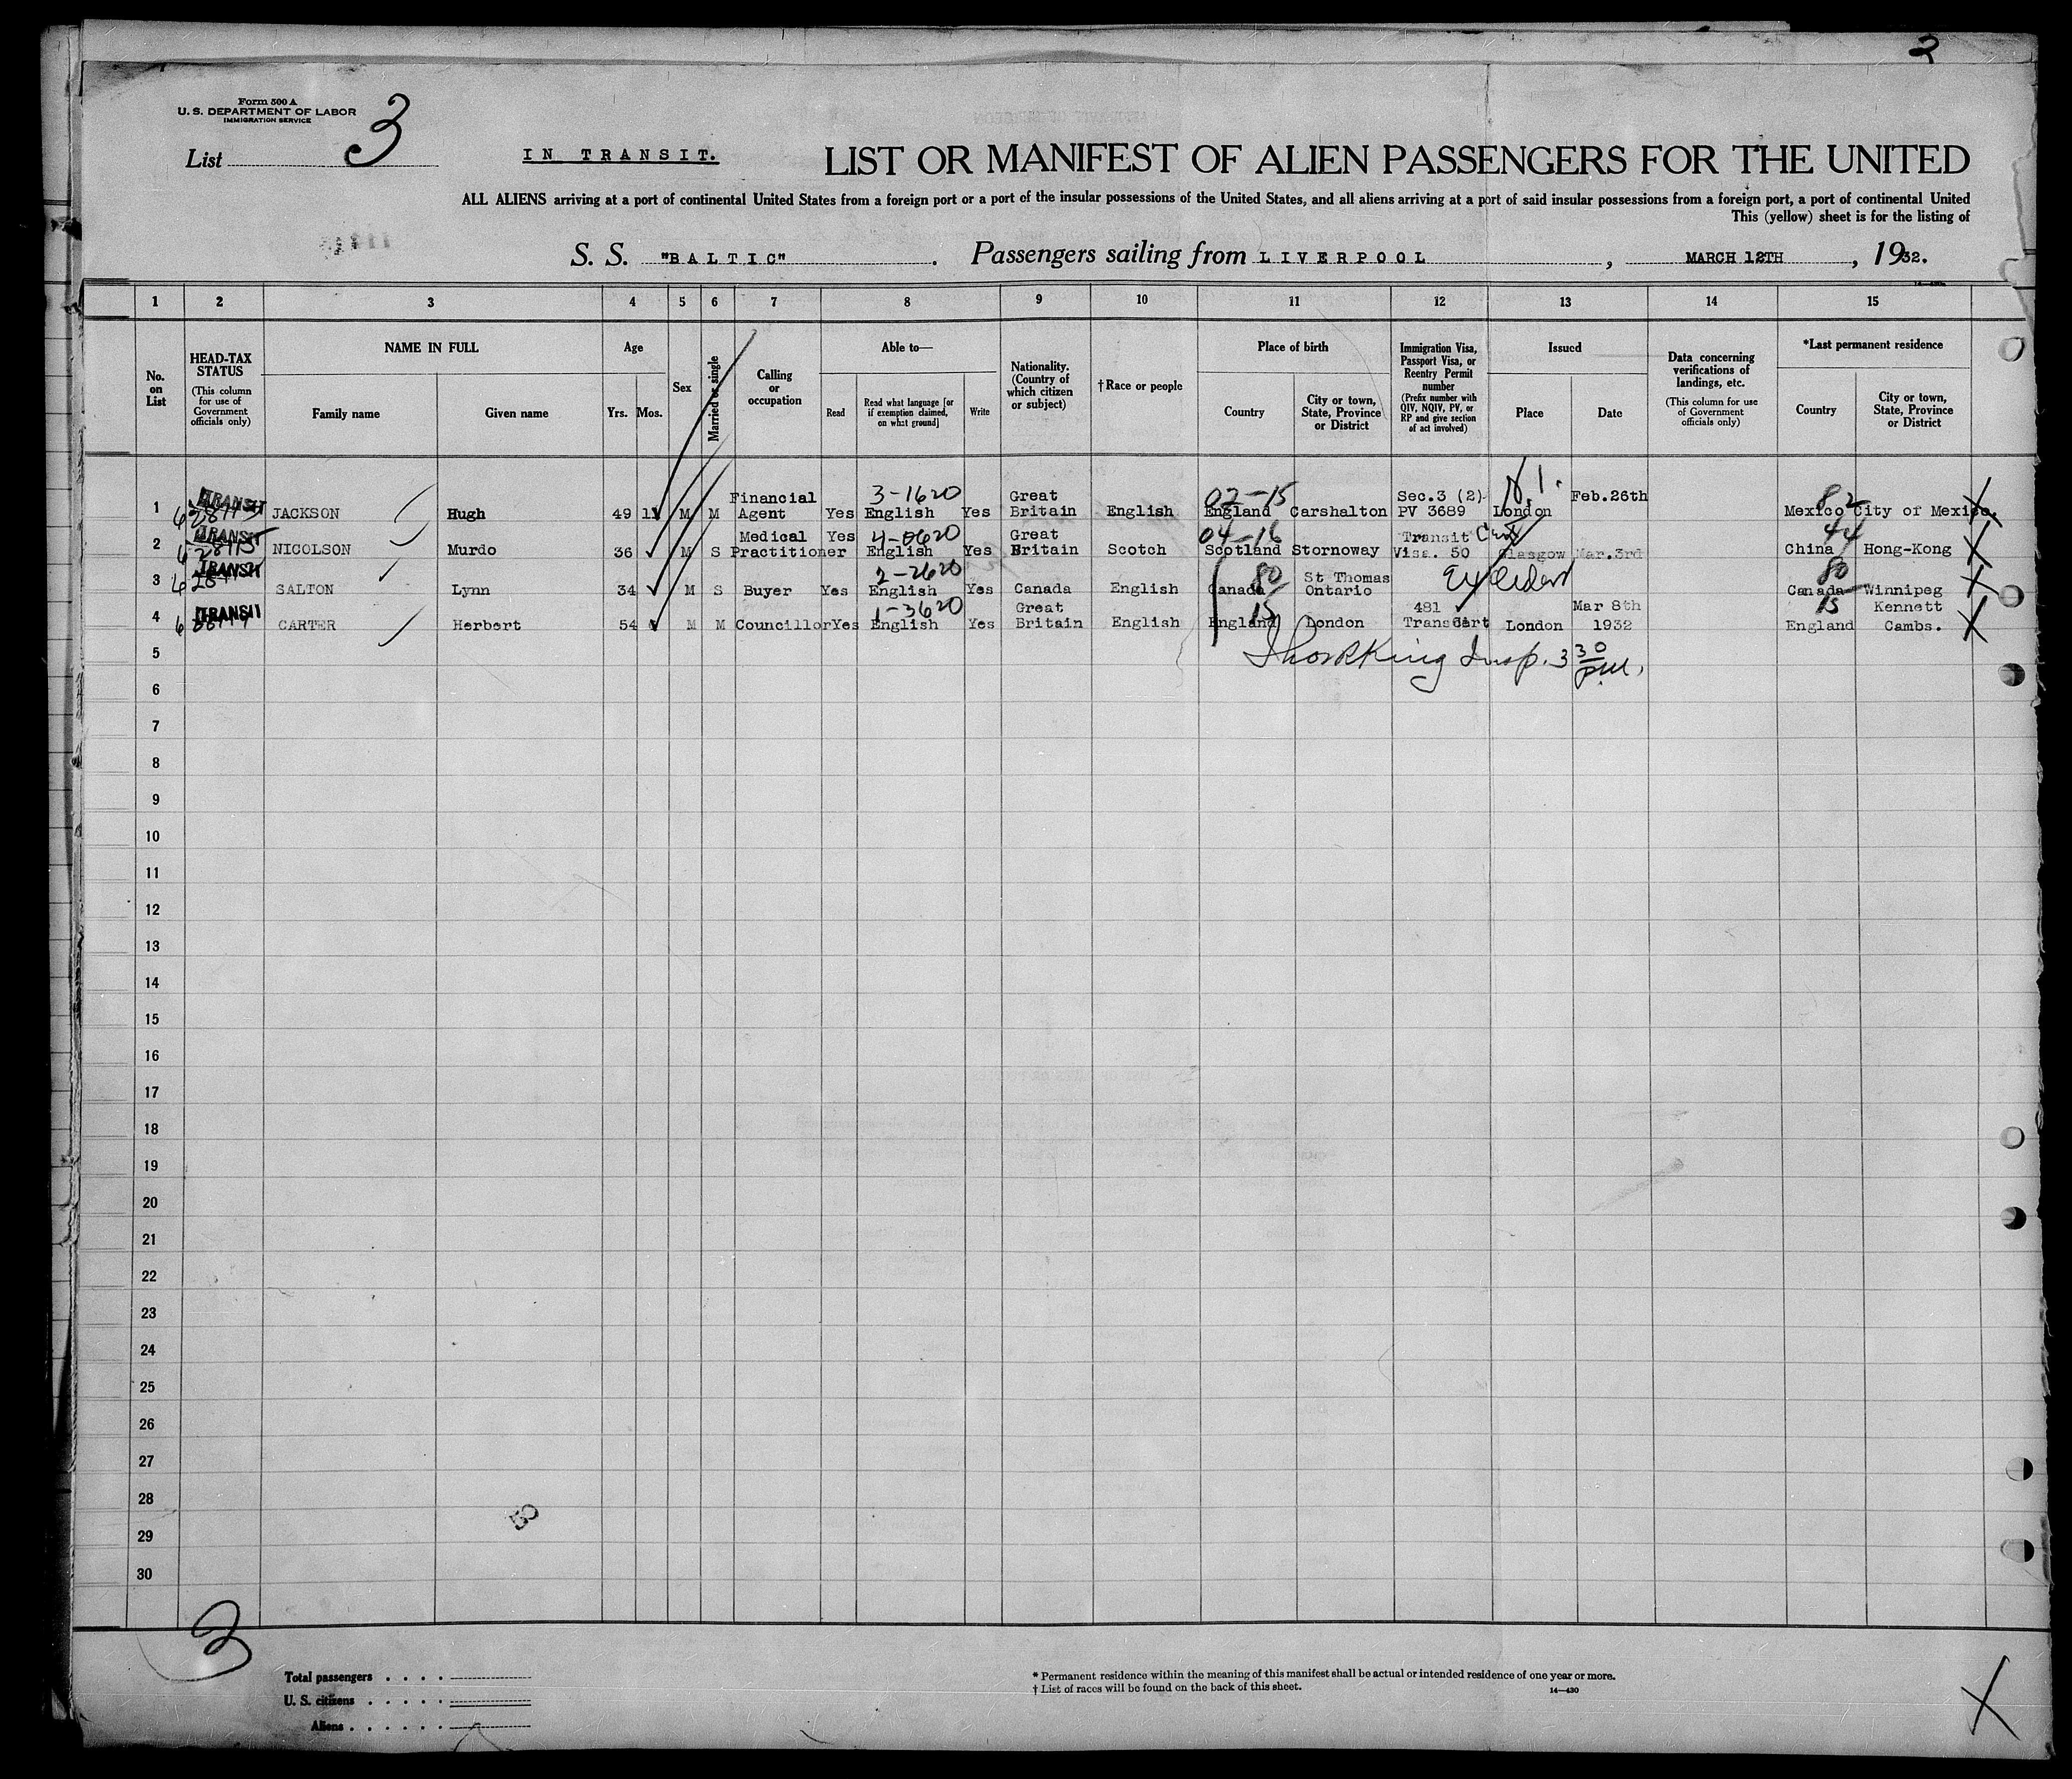 2
Form 500 A
U. S. DEPARTMENT OF LABOR
IMMIGRATION SERVICE
List 3
IN TRANSIT.
LIST OR MANIFEST OF ALIEN PASSENGERS FOR THE UNITED
ALL ALIENS arriving at a port of continental United States from a foreign port or a port of the insular possessions of the United States, and all aliens arriving at a port of said insular possessions from a foreign port, a port of continental United
This (yellow) sheet is for the listing of
S. S. "BALTIC". Passengers sailing from LIVERPOOL, MARCH 12TH, 1932.
1 2 3 4 5 6 7 8 9 10 11 12 13 14 15
No. on List
HEAD-TAX STATUS
(This column for use of Government officials only)
NAME IN FULL
Family name
Given name
Age
Yrs. Mos.
Sex
Married or single
Calling or occupation
Able to—
Read
Read what language [or if exemption claimed, on what ground]
Write
Nationality. (Country of which citizen or subject)
† Race or people
Place of birth
Country
City or town, State, Province or District
Immigration Visa, Passport Visa, or Reentry Permit number
(Prefix number with QIV, NQIV, PV, or RP and give section of act involved)
Issued
Place
Date
Data concerning verifications of landings, etc.
(This column for use of Government officials only)
*Last permanent residence
Country
City or town, State, Province or District
1 TRANSIT JACKSON Hugh 49 11 M M Financial Agent Yes 3-1620 English Yes Great Britain English 02-15 England Carshalton Sec.3 (2) PV 3689 London Feb.26th 82 Mexico City of Mexico.
2 TRANSIT NICOLSON Murdo 36 M S Medical Practitioner Yes 4-0620 English Yes Great Britain Scotch 04-16 Scotland Stornoway Transit Cert Visa. 50 Glasgow Mar.3rd 44 China Hong-Kong
3 TRANSIT SALTON Lynn 34 M S Buyer Yes 2-2620 English Yes Canada English 80 Canada St Thomas Ontario 80 Canada Winnipeg
4 TRANSIT CARTER Herbert 54 M M Councillor Yes 1-3620 English Yes Great Britain English 15 England London 481 Trans Cert London Mar 8th 1932 15 England Kennett Cambs.
5 Insp. 3 30 P.M.
6
7
8
9
10
11
12
13
14
15
16
17
18
19
20
21
22
23
24
25
26
27
28
29
30
3
Total passengers
U. S. citizens
Aliens
* Permanent residence within the meaning of this manifest shall be actual or intended residence of one year or more.
† List of races will be found on the back of this sheet.
14—430